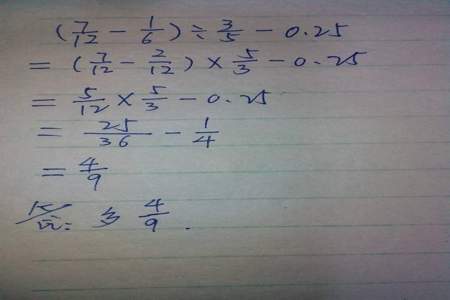 (7/12 - 1/6) ÷ 3/5 - 0.25
= (7/12 - 2/12) × 5/3 - 0.25
= 5/12 × 5/3 - 0.25
= 25/36 - 1/4
= 4/9
4/9.